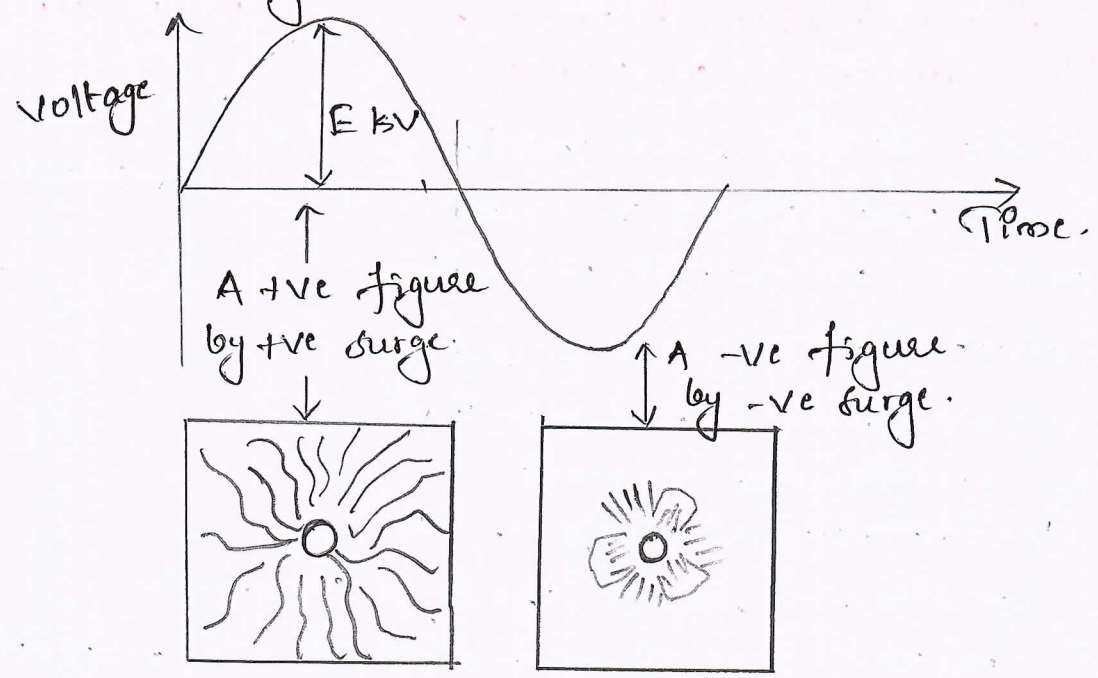 Voltage
E kV
Time.
A +ve figure
by +ve surge.
A -ve figure.
by -ve surge.